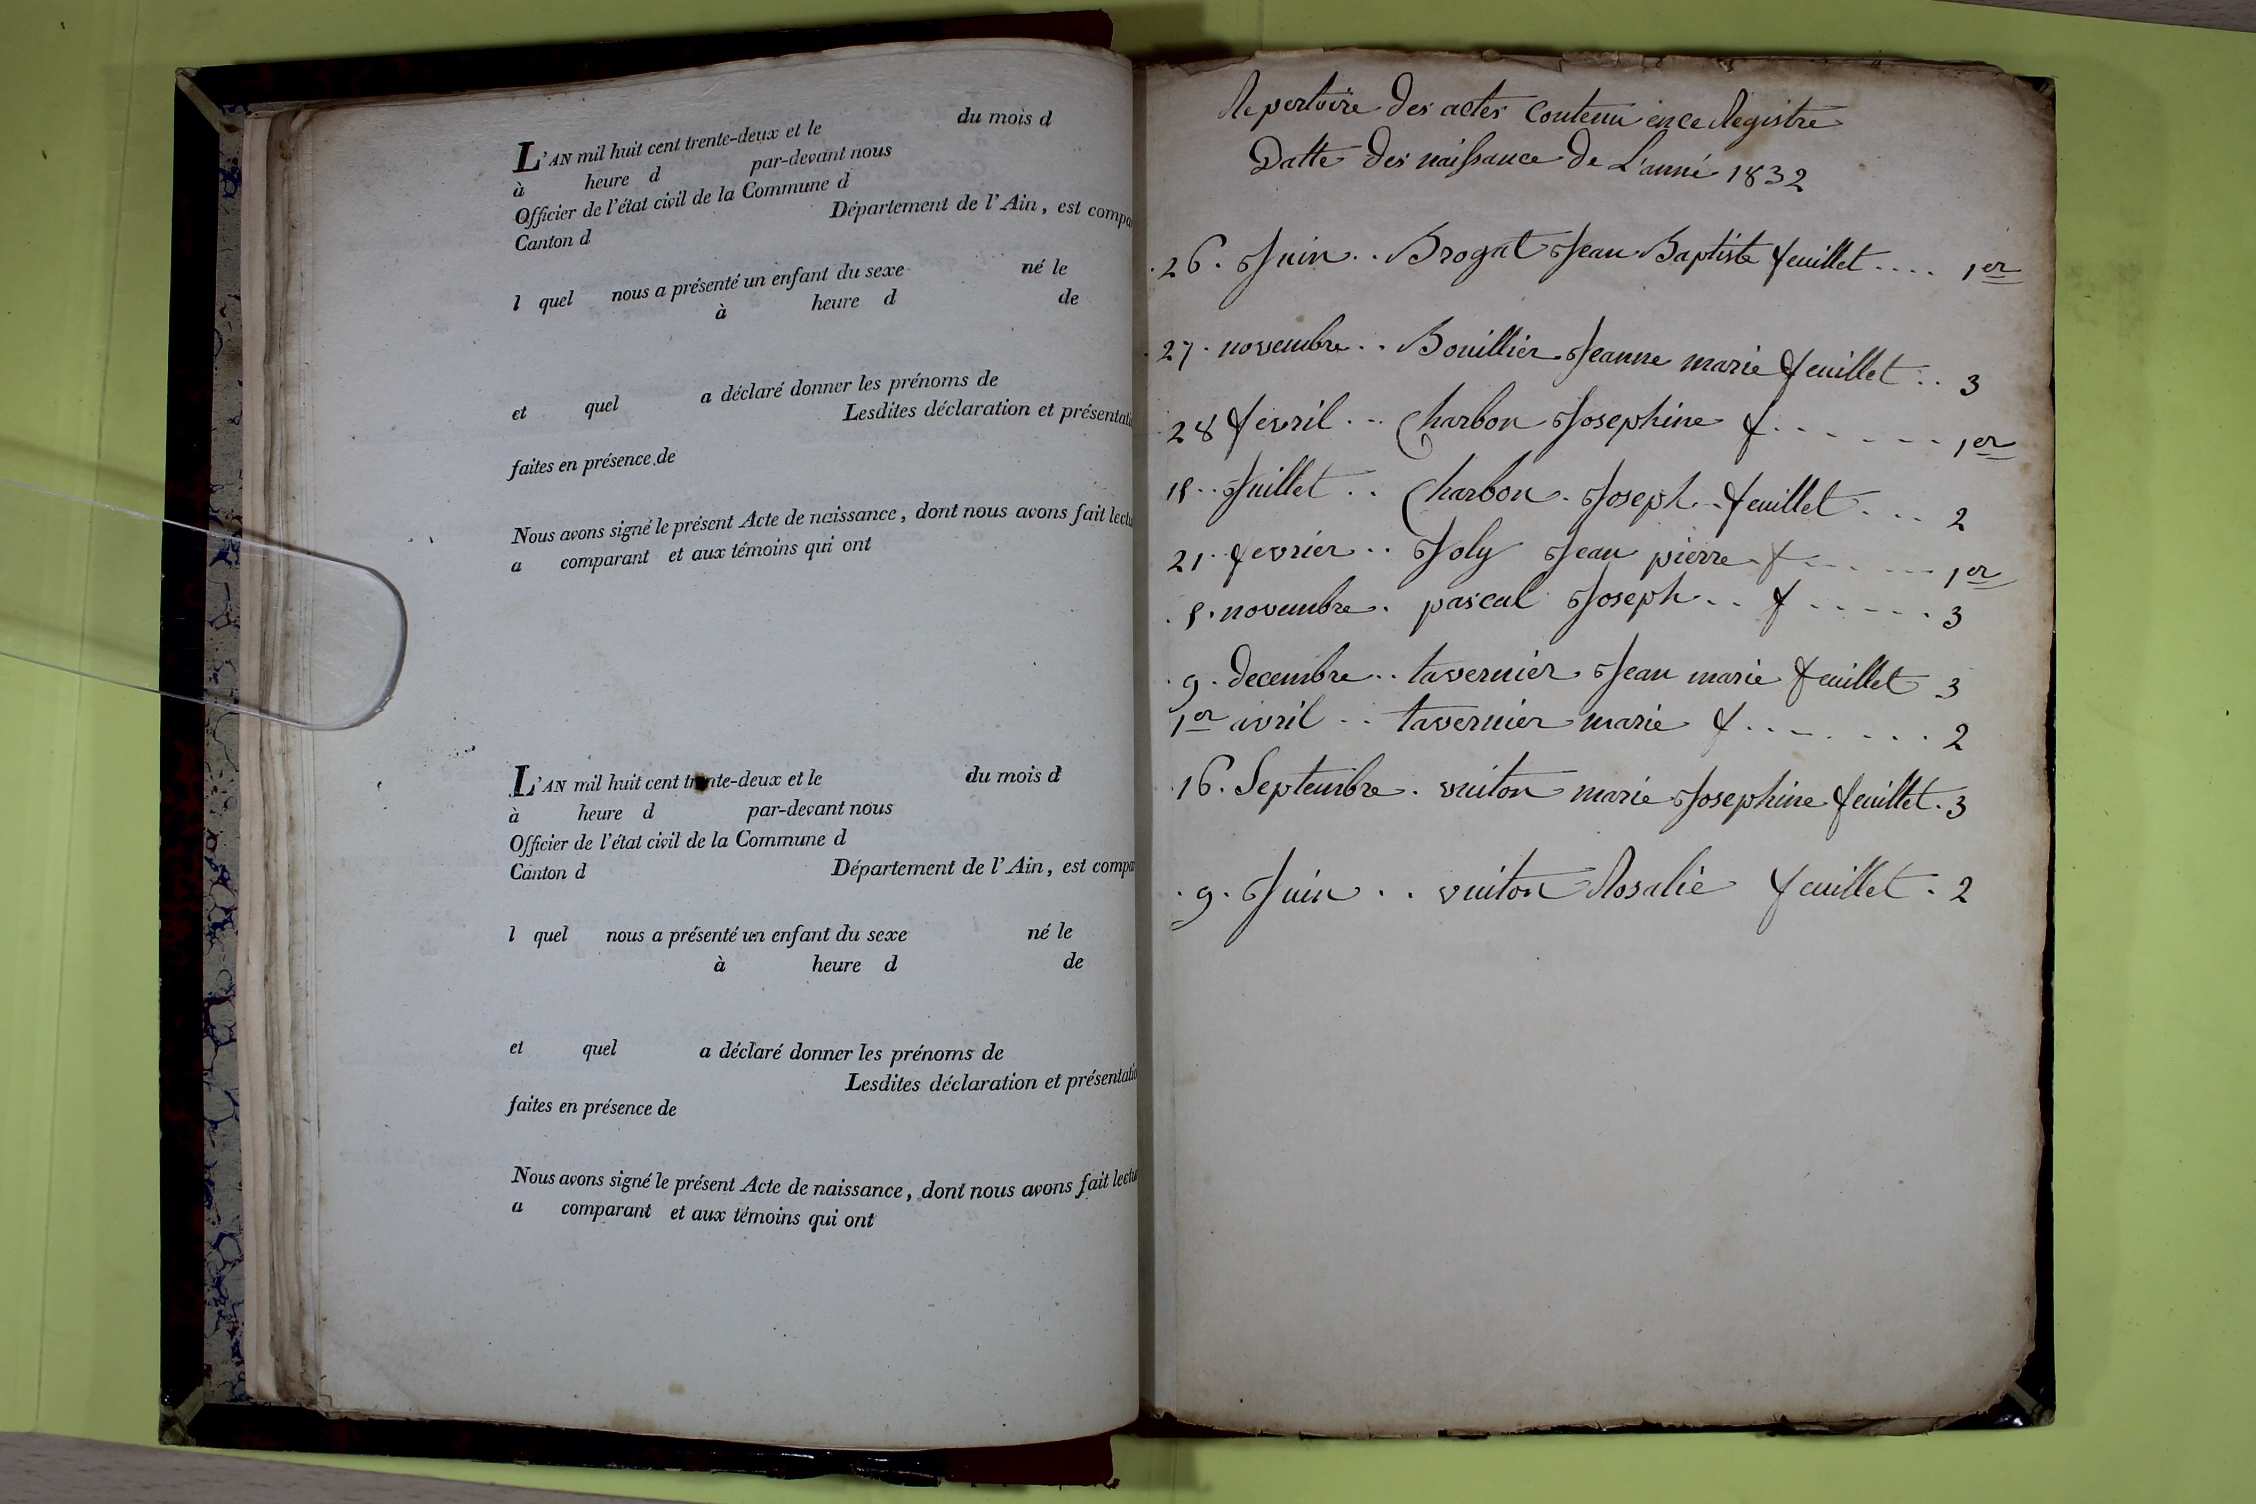 L'AN mil huit cent trente-deux et le du mois d
à heure d par-devant nous
Officier de l'état civil de la Commune d
Canton d Département de l'Ain, est compa
l quel nous a présenté un enfant du sexe né le
à heure d de
et quel a déclaré donner les prénoms de
Lesdites déclaration et présentati
faites en présence de
Nous avons signé le présent Acte de naissance, dont nous avons fait lectu
a comparant et aux témoins qui ont
L'AN mil huit cent trente-deux et le du mois d
à heure d par-devant nous
Officier de l'état civil de la Commune d
Canton d Département de l'Ain, est compa
l quel nous a présenté un enfant du sexe né le
à heure d de
et quel a déclaré donner les prénoms de
Lesdites déclaration et présentatio
faites en présence de
Nous avons signé le présent Acte de naissance, dont nous avons fait lectu
a comparant et aux témoins qui ont
Repertoire des actes Contenu ence Registre
Datte des naissance de L'anné 1832
26. Juin .. Brogat Jean Baptiste feuillet .... 1er
27. novembre .. Bouillier Jeanne marie feuillet .. 3
28 fevril ... Charbon Josephine f ....... 1er
Juillet .. Charbon. Joseph .. feuillet .... 2
21. fevrier .. Joly Jean pierre f ...... 1er
novembre. pascal Joseph .. f ...... 3
9. decembre .. tavernier Jean marie feuillet 3
1er avril .. tavernier marie f ........ 2
16. Septembre. vuiton marie Josephine feuillet. 3
9. Juin .. vuiton Rosalie feuillet. 2